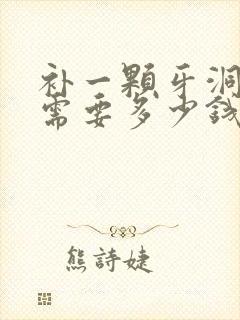 补一顆牙洞
需要多少錢
熊詩婕